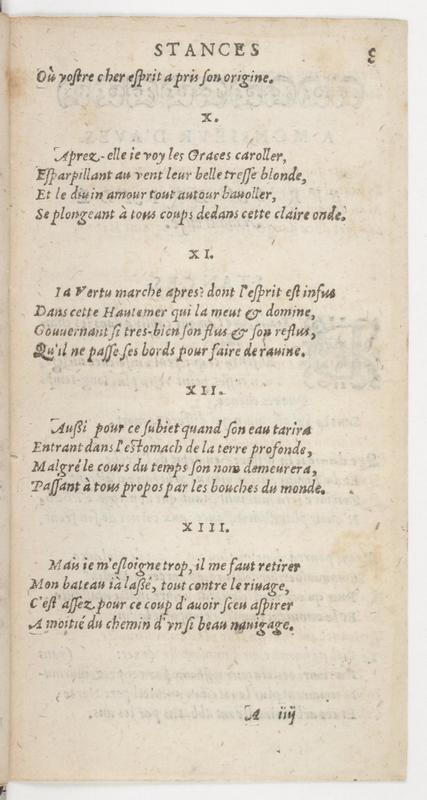 STANCES
Où vostre cher esprit a pris son origine.
X.
Aprez-elle ie voy les Graces caroller,
Esparpillant au vent leur belle tresse blonde,
Et le diuin amour tout autour bauoller,
Se plongeant à tous coups dedans cette claire onde.
XI.
La Vertu marche apres: dont l'esprit est infus
Dans cette Hautemer qui la meut & domine,
Gouuernant si tres-bien son flus & son reflus,
Qu'il ne passe ses bords pour faire de rauine.
XII.
Außi pour ce subiet quand son eau tarira
Entrant dans l'estomach de la terre profonde,
Malgré le cours du temps son nom demeurera,
Passant à tous propos par les bouches du monde.
XIII.
Mais ie m'esloigne trop, il me faut retirer
Mon bateau ià laßé, tout contre le riuage,
C'est assez pour ce coup d'auoir sceu aspirer
A moitié du chemin d'vn si beau nauigage.
A iiij